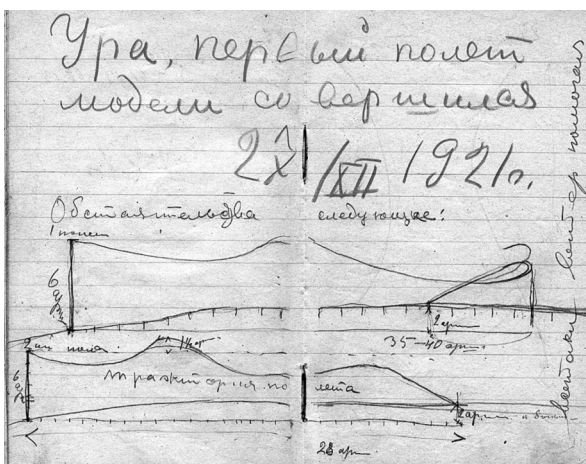 Ура, первый полет
модели совершился
2X | XII 1921г.
Обстаятельства следующие:
1 полет
6 арш
2 арш
35-40 арш.
2ой полет
1½ арш
траектория полета
6 арш
2 арш
28 арш
всетаки ветер помогал